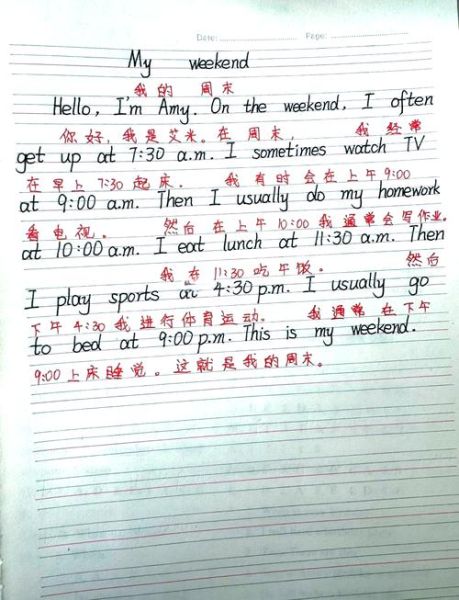 Date: Page:
My weekend
我的 周末
Hello, I'm Amy. On the weekend, I often
你好,我是艾米。在 周末, 我 经常
get up at 7:30 a.m. I sometimes watch TV
在早上 7:30 起床。 我有时会在上午 9:00
at 9:00 a.m. Then I usually do my homework
看电视。 然后在上午 10:00 我通常会写作业。
at 10:00 a.m. I eat lunch at 11:30 a.m. Then
我在 11:30 吃午饭。 然后
I play sports at 4:30 p.m. I usually go
下午 4:30 我进行体育运动。 我通常在下午
to bed at 9:00 p.m. This is my weekend.
9:00 上床睡觉。这就是我的周末。